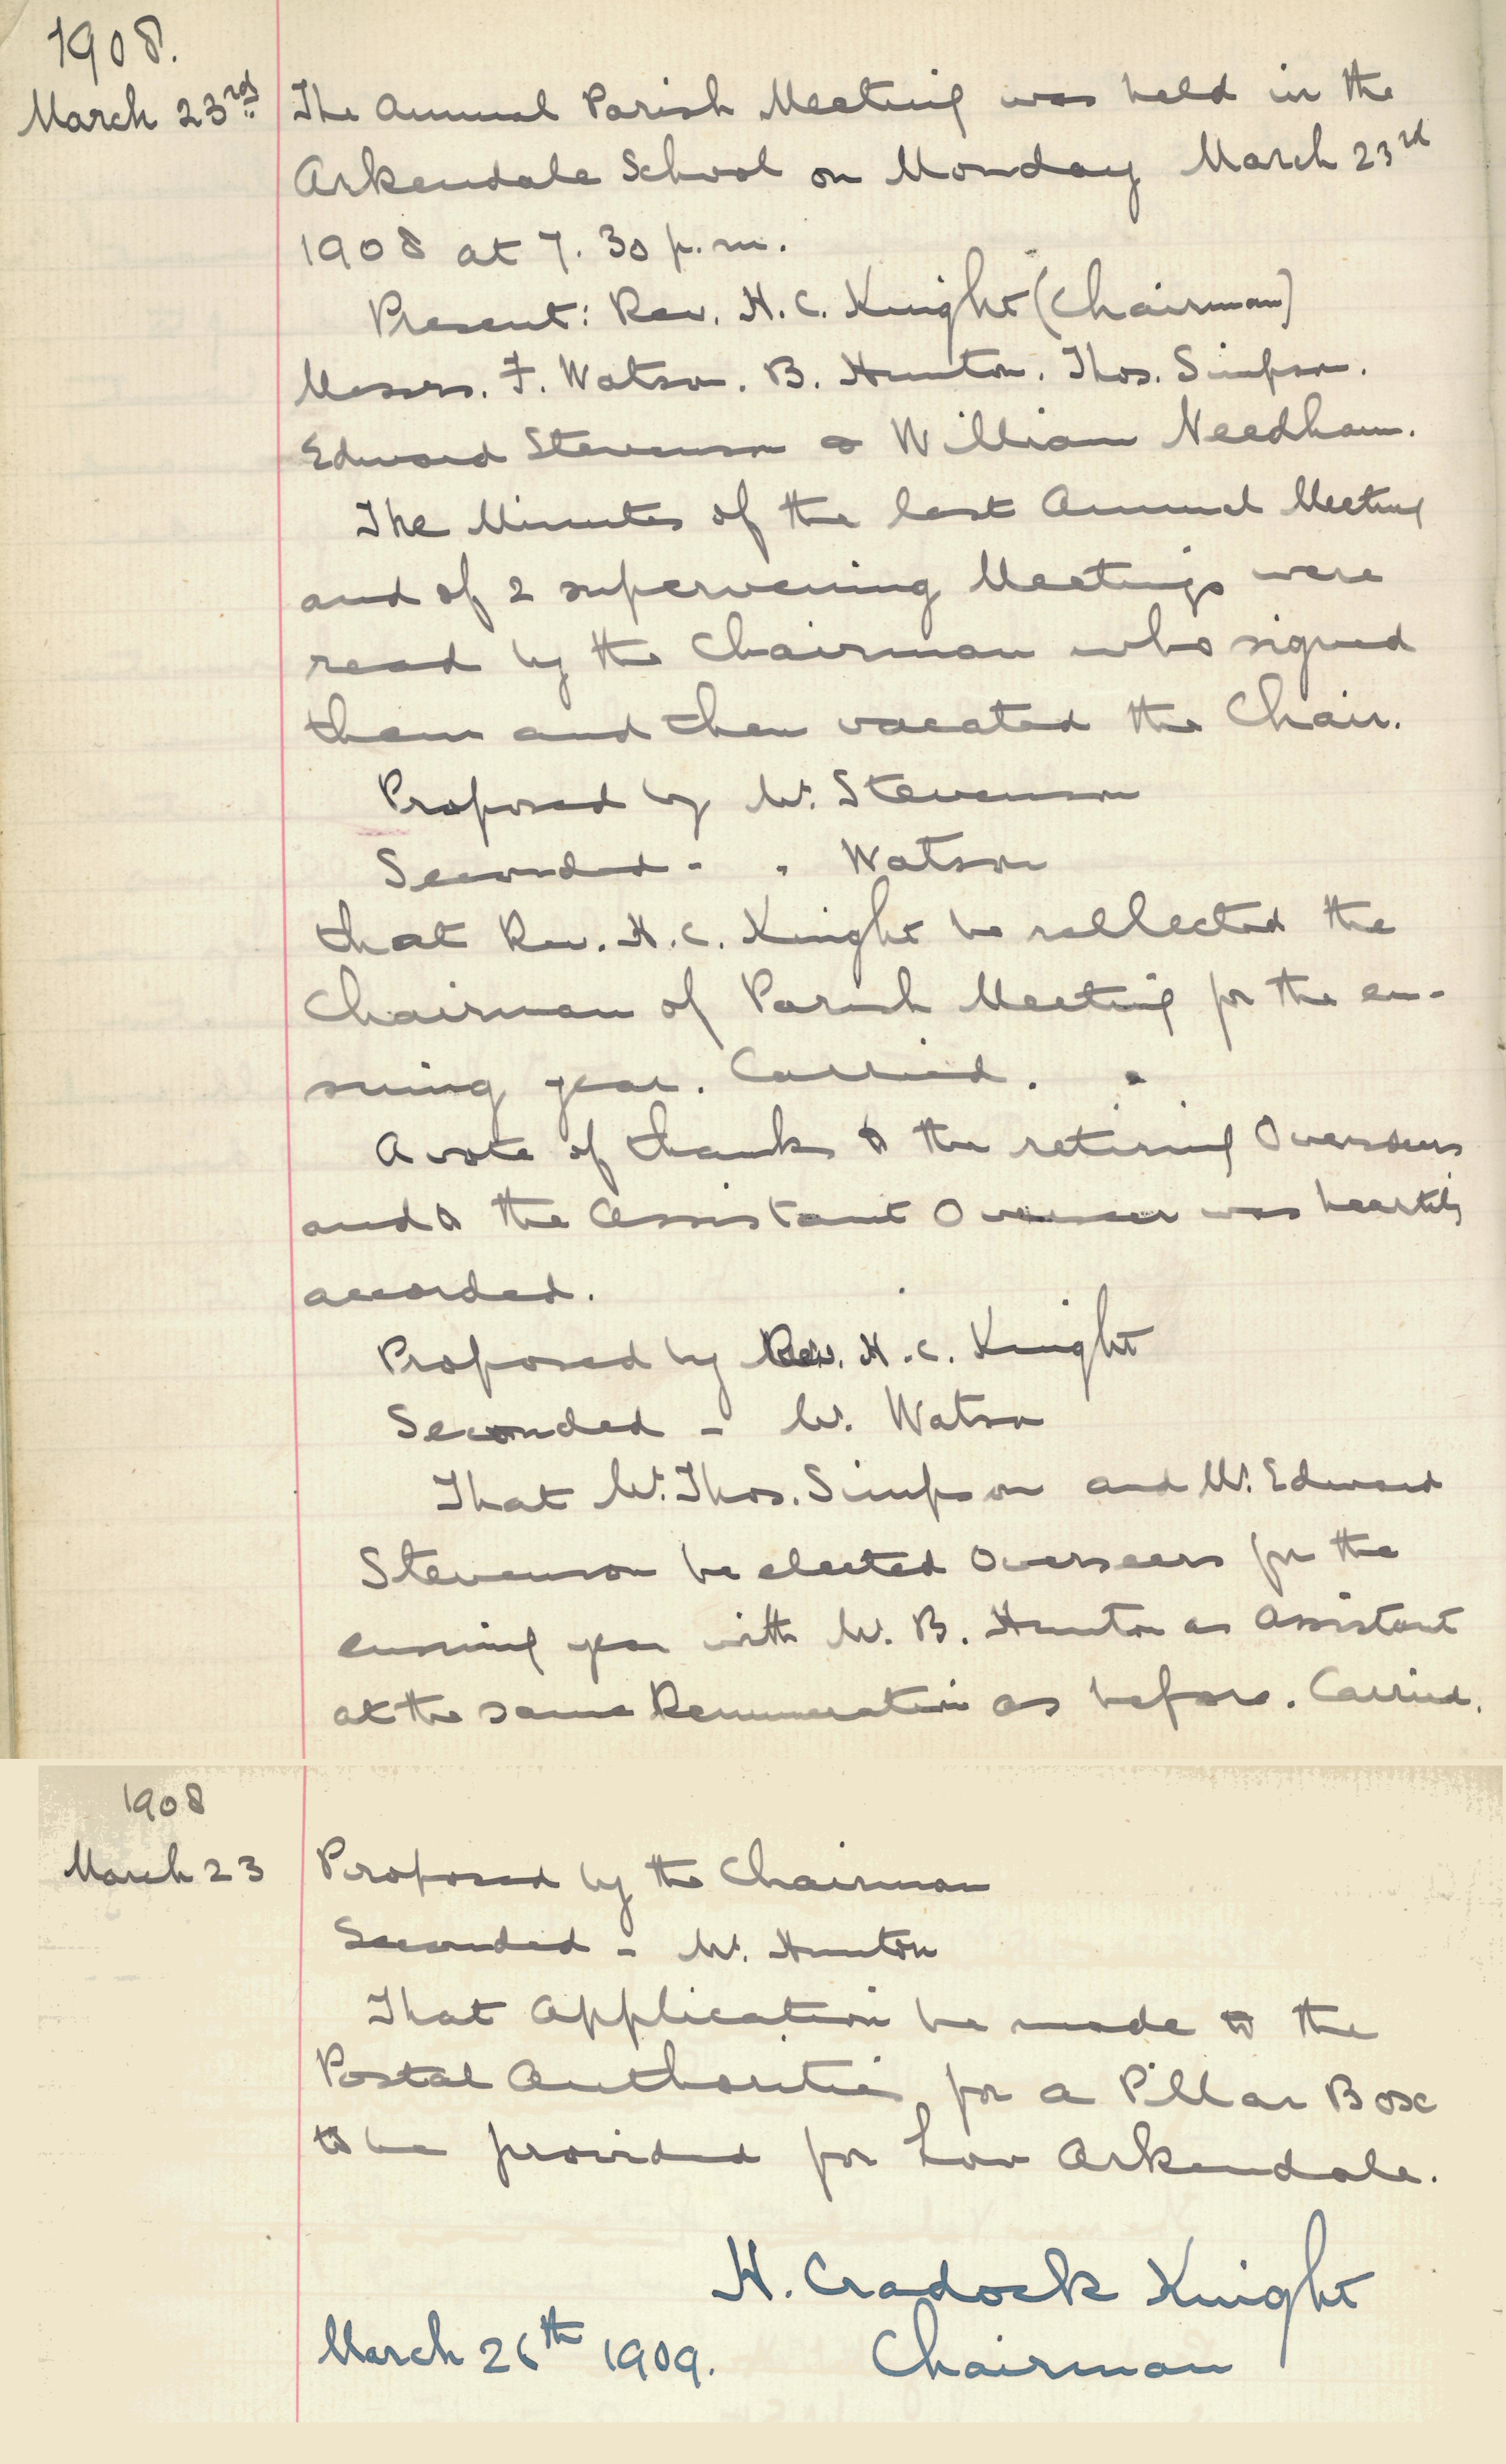 1908.
March 23rd
The Annual Parish Meeting was held in the
Arkendale School on Monday March 23rd
1908 at 7.30 p.m.
Present: Rev. H. C. Knight (Chairman)
Messrs. F. Watson. B. Hunton. Thos. Simpson.
Edward Stevenson & William Needham.
The Minutes of the last Annual Meeting
and of 2 supervening Meetings were
read by the Chairman who signed
them and then vacated the Chair.
Proposed by Mr. Stevenson
Seconded - " Watson
that Rev. H. C. Knight be reelected the
Chairman of Parish Meeting for the en-
suing year. Carried.
A vote of thanks to the retiring Overseers
and to the Assistant Overseer was heartily
accorded.
Proposed by Rev. H. C. Knight
Seconded - Mr. Watson
That Mr. Thos. Simpson and Mr. Edward
Stevenson be elected Overseers for the
ensuing year with Mr. B. Hunton as Assistant
at the same Remuneration as before. Carried.
1908
March 23
Proposed by the Chairman
Seconded - Mr. Hunton
That Application be made to the
Postal Authorities for a Pillar Box
to be provided for Low Arkendale.
H. Cradock Knight
March 26th 1909. Chairman